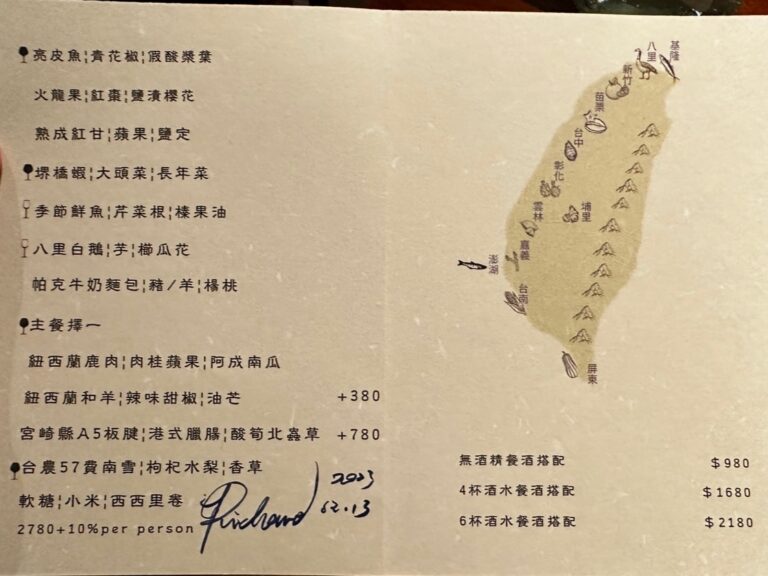 亮皮魚¦青花椒¦假酸漿葉
火龍果¦紅棗¦鹽漬櫻花
熟成紅甘¦蘋果¦鹽定
堺橋蝦¦大頭菜¦長年菜
季節鮮魚¦芹菜根¦榛果油
八里白鵝¦芋¦櫛瓜花
帕克牛奶麵包¦豬/羊¦楊桃
主餐擇一
紐西蘭鹿肉¦肉桂蘋果¦阿成南瓜
紐西蘭和羊¦辣味甜椒¦油芒 +380
宮崎縣A5板腱¦港式臘腸¦酸筍北蟲草 +780
台農57費南雪¦枸杞水梨¦香草
軟糖¦小米¦西西里卷
2780+10%per person
Richard 2023
12.13
基隆
八里
新竹
苗栗
台中
彰化
埔里
雲林
嘉義
澎湖
台南
屏東
無酒精餐酒搭配 $980
4杯酒水餐酒搭配 $1680
6杯酒水餐酒搭配 $2180